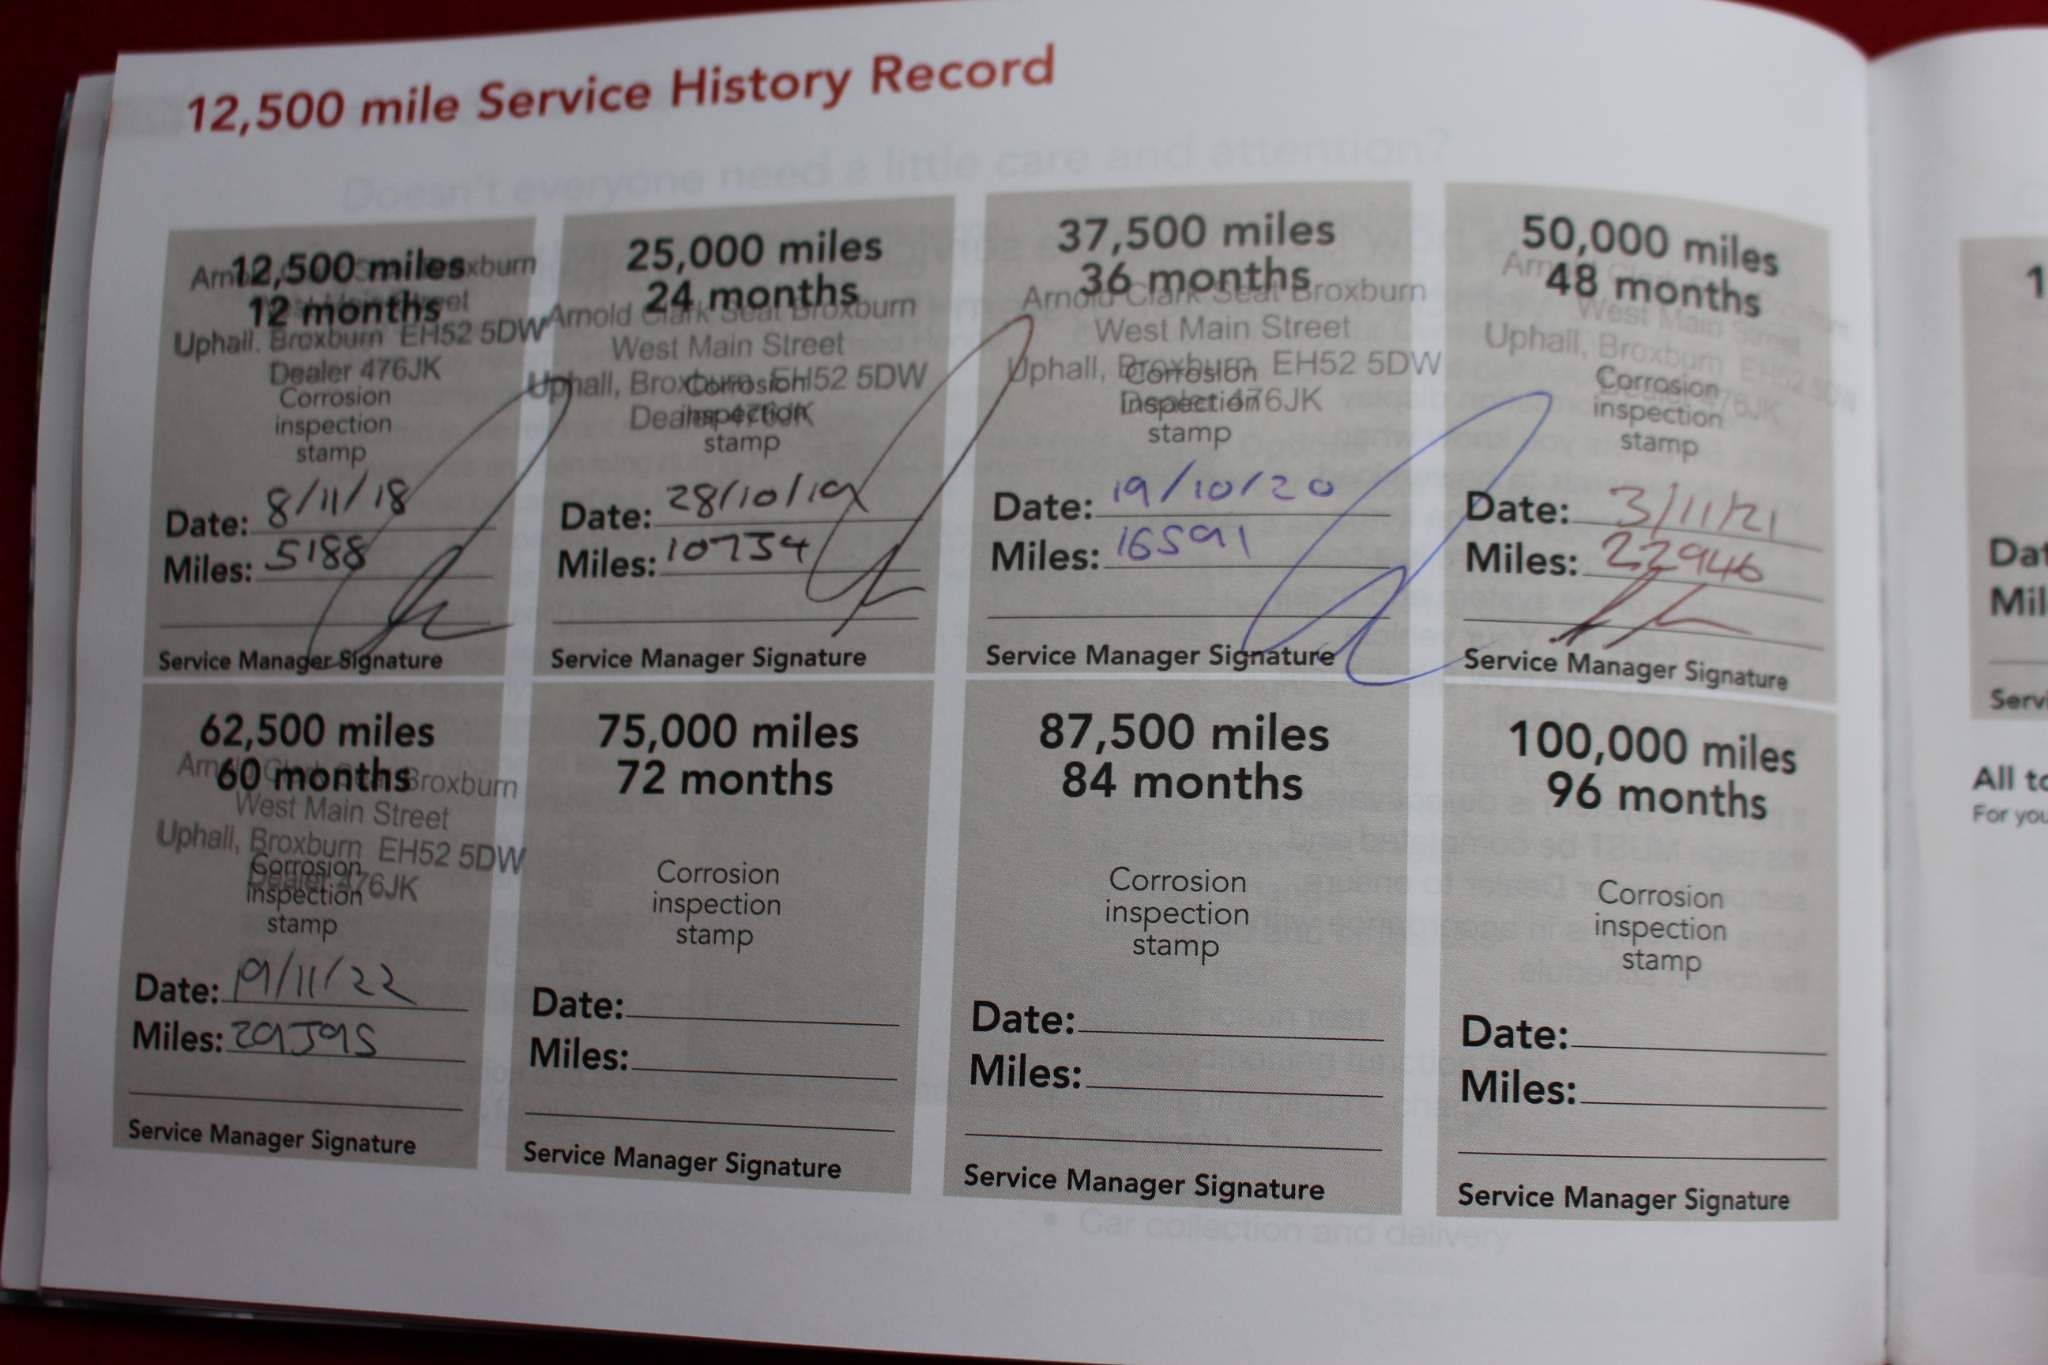 12,500 mile Service History Record
Doesn't everyone need a little care and attention?
12,500 miles
12 months
Uphall, Broxburn EH52 5DW
Dealer 476JK
Corrosion
inspection
stamp
Date: 8/11/18
Miles: 5188
Service Manager Signature
25,000 miles
24 months
Arnold Clark Seat Broxburn
West Main Street
Uphall, Broxburn EH52 5DW
Dealer 476JK
Corrosion
inspection
stamp
Date: 28/10/19
Miles: 10734
Service Manager Signature
37,500 miles
36 months
Arnold Clark Seat Broxburn
West Main Street
Uphall, Broxburn EH52 5DW
Dealer 476JK
Corrosion
inspection
stamp
Date: 19/10/20
Miles: 16591
Service Manager Signature
50,000 miles
48 months
West Main Street
Uphall, Broxburn EH52 5DW
Corrosion
inspection
stamp
Date: 3/11/21
Miles: 22946
Service Manager Signature
62,500 miles
60 months
Arnold Clark Seat Broxburn
West Main Street
Uphall, Broxburn EH52 5DW
Dealer 476JK
Corrosion
inspection
stamp
Date: 19/11/22
Miles: 29395
Service Manager Signature
75,000 miles
72 months
Corrosion
inspection
stamp
Date:
Miles:
Service Manager Signature
87,500 miles
84 months
Corrosion
inspection
stamp
Date:
Miles:
Service Manager Signature
100,000 miles
96 months
Corrosion
inspection
stamp
Date:
Miles:
Service Manager Signature
• Car collection and delivery
All
For